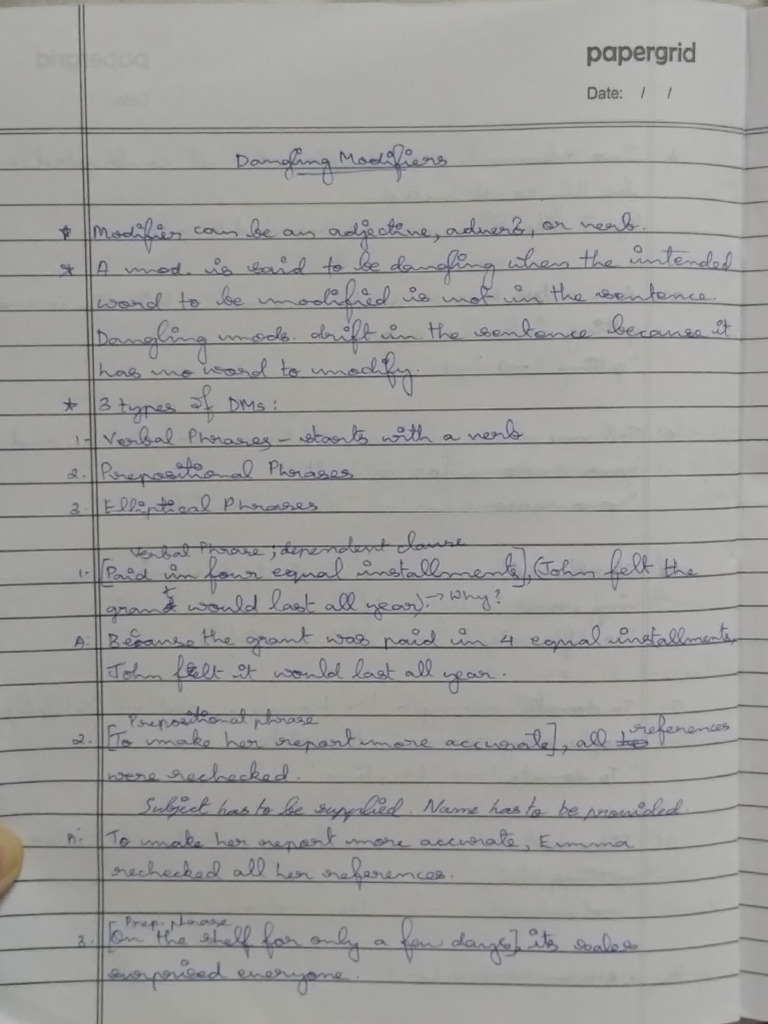 papergrid
Date: / /
Dangling Modifiers
* Modifier can be an adjective, adverb, or verb.
* A mod. is said to be dangling when the intended
word to be modified is not in the sentence.
Dangling mods. drift in the sentence because it
has no word to modify.
* 3 types of DMs:
1- Verbal Phrases - starts with a verb
2. Prepositional Phrases
3. Elliptical Phrases
Verbal Phrase ; dependent clause
1- [Paid in four equal installments], (John felt the
grant would last all year). → Why?
A. Because the grant was paid in 4 equal installments,
John felt it would last all year.
Prepositional phrase
2. [To make her report more accurate], all references
were rechecked.
Subject has to be supplied. Name has to be provided.
A. To make her report more accurate, Emma
rechecked all her references.
Prep. phrase
3. [On the shelf for only a few days], its sales
surprised everyone.